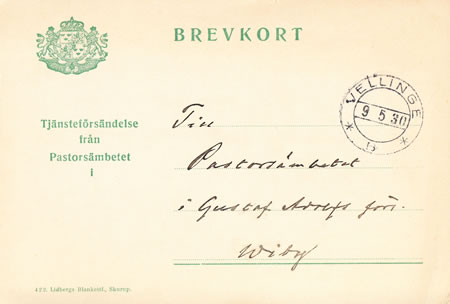 BREVKORT
Tjänsteförsändelse
från
Pastorsämbetet
i
VELLINGE
9 5 30
Till
Pastorsämbetet
i Gustaf Adolfs förs.
Wiby
422. Lidbergs Blankettf., Skurup.